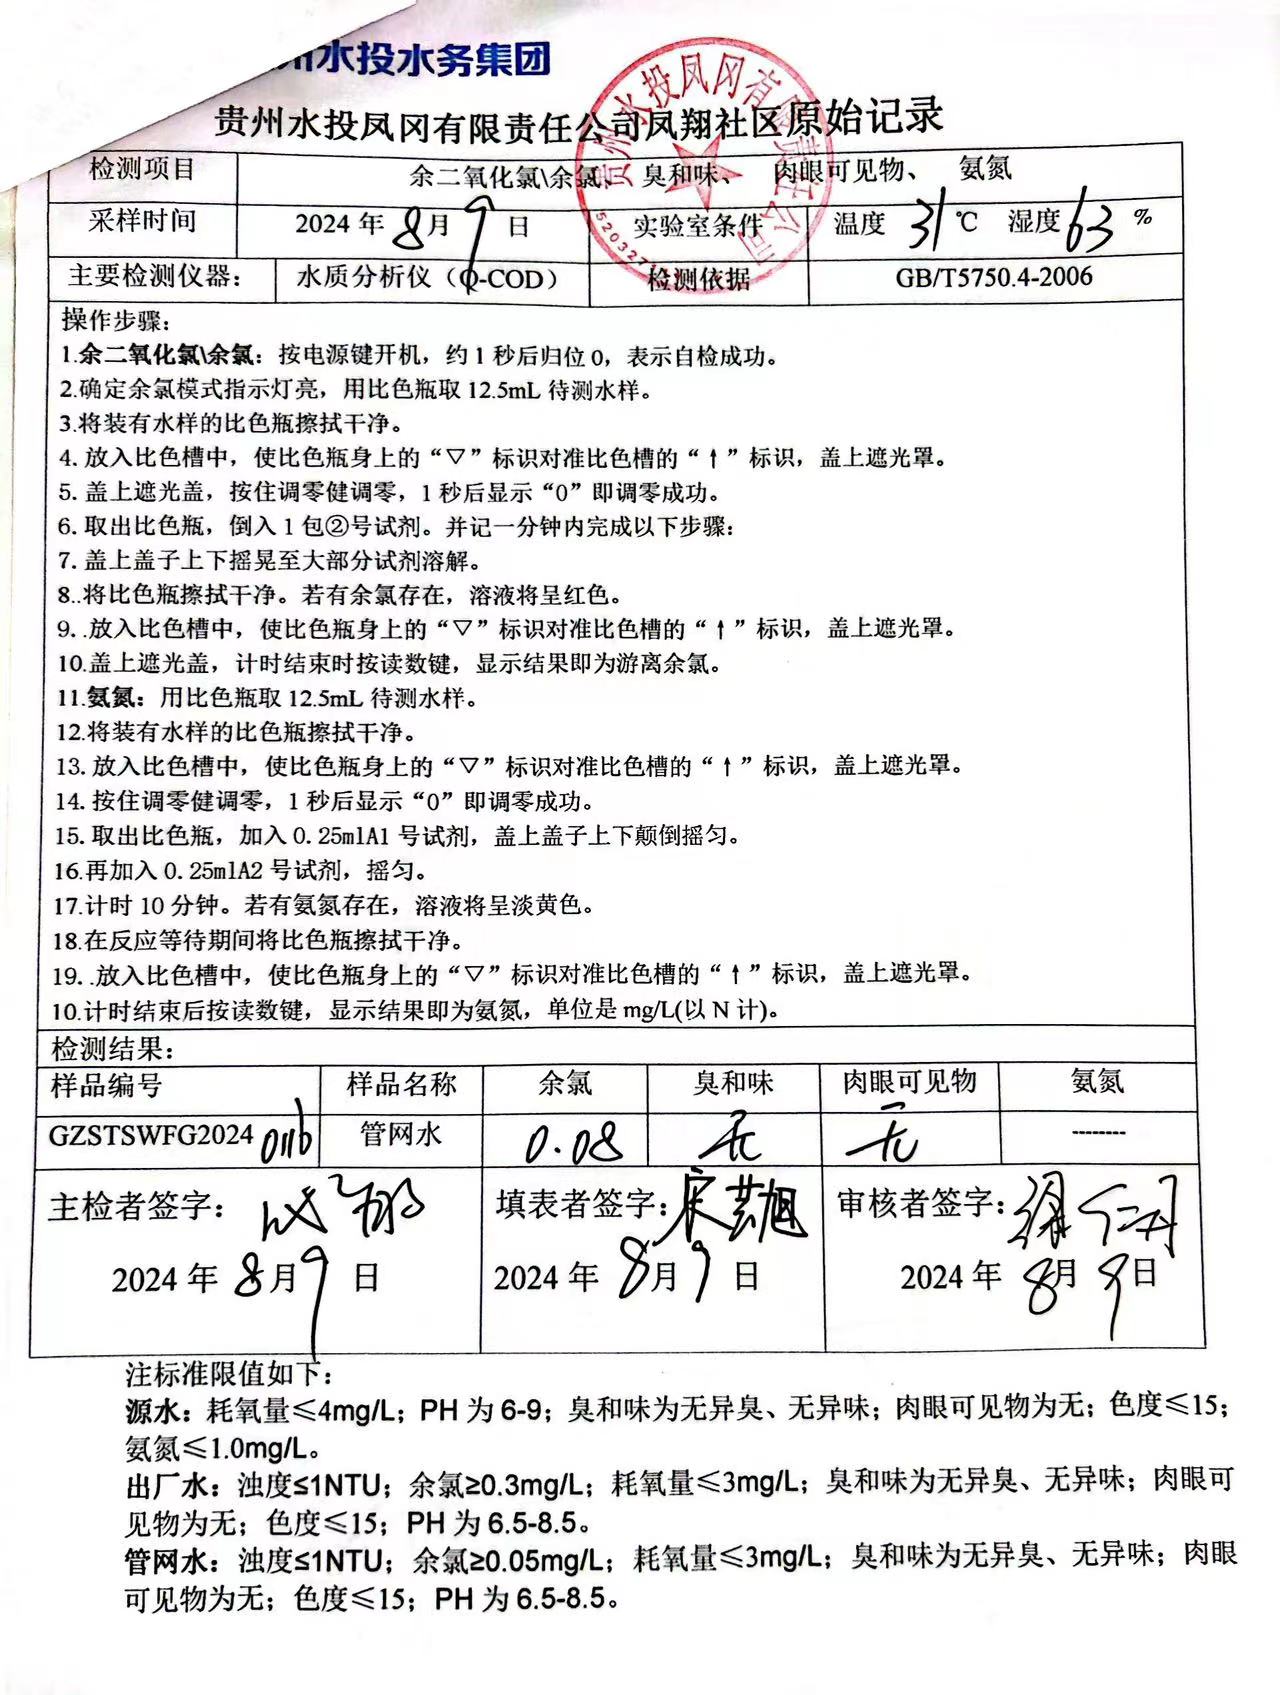 州水投水务集团
贵州水投凤冈有限责任公司凤翔社区原始记录
贵州水投凤冈有限责任公司
检测项目 余二氧化氯\余氯、 臭和味、 肉眼可见物、 氨氮
采样时间 2024 年 8 月 9 日 实验室条件 温度 31 ℃ 湿度 63 %
主要检测仪器： 水质分析仪（Q-COD） 检测依据 GB/T5750.4-2006
操作步骤：
1.余二氧化氯\余氯：按电源键开机，约 1 秒后归位 0，表示自检成功。
2.确定余氯模式指示灯亮，用比色瓶取 12.5mL 待测水样。
3.将装有水样的比色瓶擦拭干净。
4. 放入比色槽中，使比色瓶身上的“▽”标识对准比色槽的“↑”标识，盖上遮光罩。
5. 盖上遮光盖，按住调零健调零，1 秒后显示“0”即调零成功。
6. 取出比色瓶，倒入 1 包②号试剂。并记一分钟内完成以下步骤：
7. 盖上盖子上下摇晃至大部分试剂溶解。
8..将比色瓶擦拭干净。若有余氯存在，溶液将呈红色。
9. .放入比色槽中，使比色瓶身上的“▽”标识对准比色槽的“↑”标识，盖上遮光罩。
10.盖上遮光盖，计时结束时按读数键，显示结果即为游离余氯。
11.氨氮：用比色瓶取 12.5mL 待测水样。
12.将装有水样的比色瓶擦拭干净。
13. 放入比色槽中，使比色瓶身上的“▽”标识对准比色槽的“↑”标识，盖上遮光罩。
14. 按住调零健调零，1 秒后显示“0”即调零成功。
15. 取出比色瓶，加入 0.25mlA1 号试剂，盖上盖子上下颠倒摇匀。
16.再加入 0.25mlA2 号试剂，摇匀。
17.计时 10 分钟。若有氨氮存在，溶液将呈淡黄色。
18.在反应等待期间将比色瓶擦拭干净。
19. .放入比色槽中，使比色瓶身上的“▽”标识对准比色槽的“↑”标识，盖上遮光罩。
10.计时结束后按读数键，显示结果即为氨氮，单位是 mg/L(以 N 计)。
检测结果：
样品编号 样品名称 余氯 臭和味 肉眼可见物 氨氮
GZSTSWFG2024 0116 管网水 0.08 无 无 --------
主检者签字： 填表者签字： 审核者签字：
2024 年 8 月 9 日 2024 年 8 月 9 日 2024 年 8 月 9 日
注标准限值如下：
源水：耗氧量≤4mg/L；PH 为 6-9；臭和味为无异臭、无异味；肉眼可见物为无；色度≤15；
氨氮≤1.0mg/L。
出厂水：浊度≤1NTU；余氯≥0.3mg/L；耗氧量≤3mg/L；臭和味为无异臭、无异味；肉眼可
见物为无；色度≤15；PH 为 6.5-8.5。
管网水：浊度≤1NTU；余氯≥0.05mg/L；耗氧量≤3mg/L；臭和味为无异臭、无异味；肉眼
可见物为无；色度≤15；PH 为 6.5-8.5。